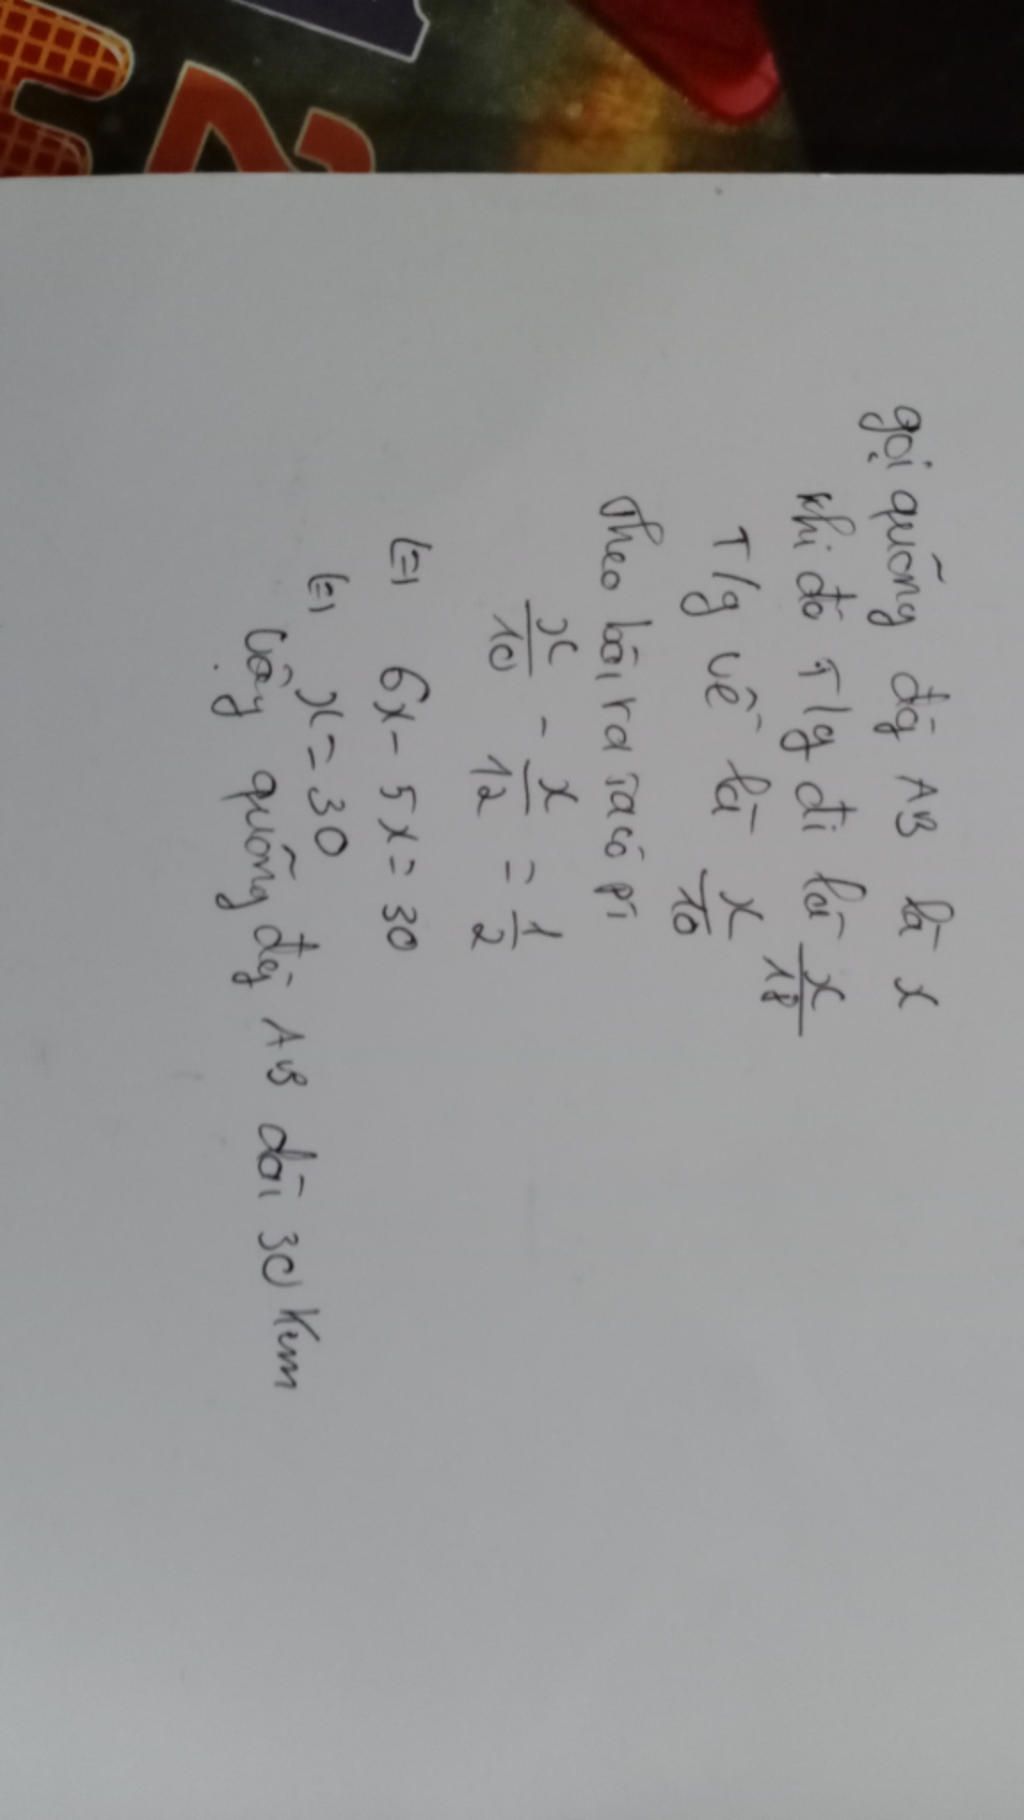 gọi quãng đg AB là x
khi đó T/g đi là x/18
T/g về là x/10
Theo bài ra ta có pt
x/10 - x/12 = 1/2
(=) 6x - 5x = 30
(=) x = 30
Vậy quãng đg AB dài 30 km